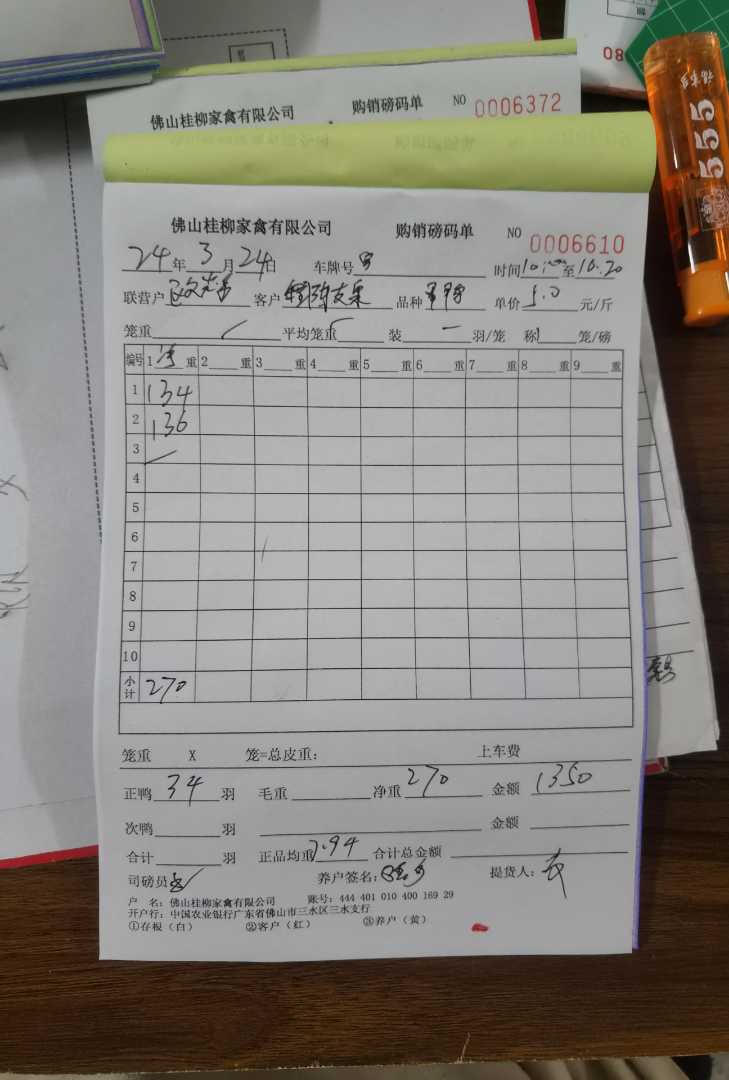 佛山桂柳家禽有限公司 购销磅码单 NO 0006372
08
555
佛山桂柳家禽有限公司 购销磅码单 NO 0006610
24年3月24日 车牌号 时间10: 至10.20
联营户 客户 品种 单价5.0元/斤
笼重 平均笼重 装 羽/笼 称 笼/磅
编号 1 净 重 2 重 3 重 4 重 5 重 6 重 7 重 8 重 9 重
1 134
2 136
3
4
5
6
7
8
9
10
小计 270
笼重 X 笼=总皮重: 上车费
正鸭 34 羽 毛重 净重 270 金额 1350
次鸭 羽 金额
合计 羽 正品均重 7.94 合计总金额
司磅员 养户签名: 提货人:
户 名: 佛山桂柳家禽有限公司 账号: 444 401 010 400 169 29
开户行: 中国农业银行广东省佛山市三水区三水支行
①存根（白） ②客户（红） ③养户（黄）